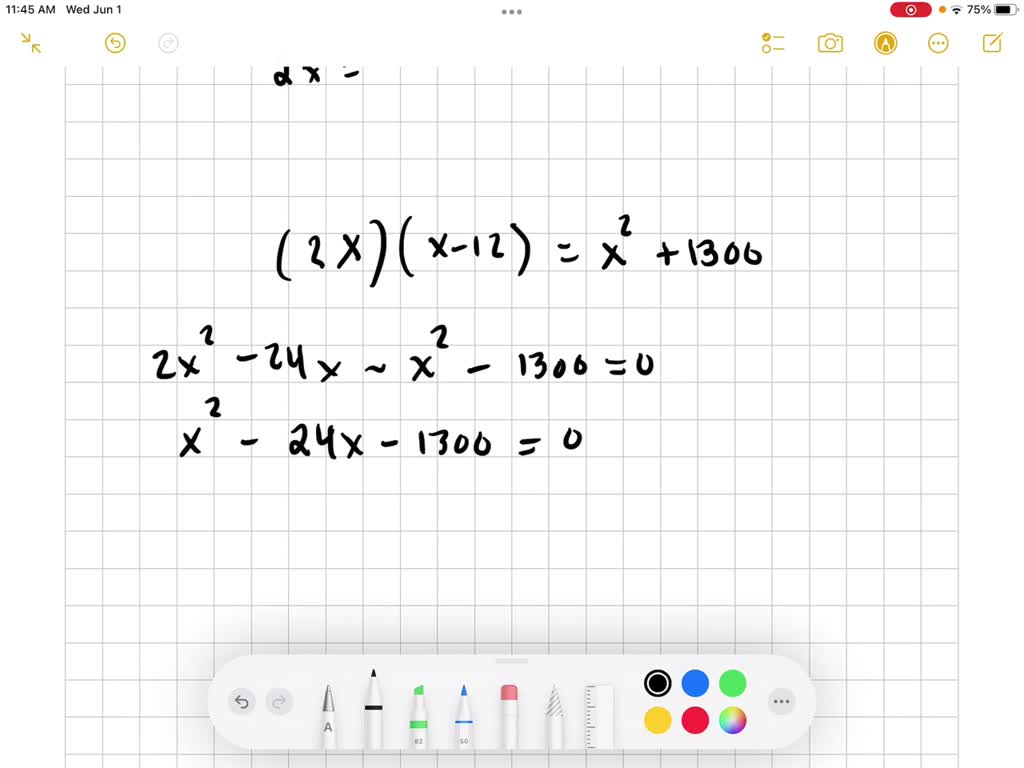 11:45 AM Wed Jun 1
75%
2x =
(2x)(x-12) = x² + 1300
2x² - 24x - x² - 1300 = 0
x² - 24x - 1300 = 0
A
82
50